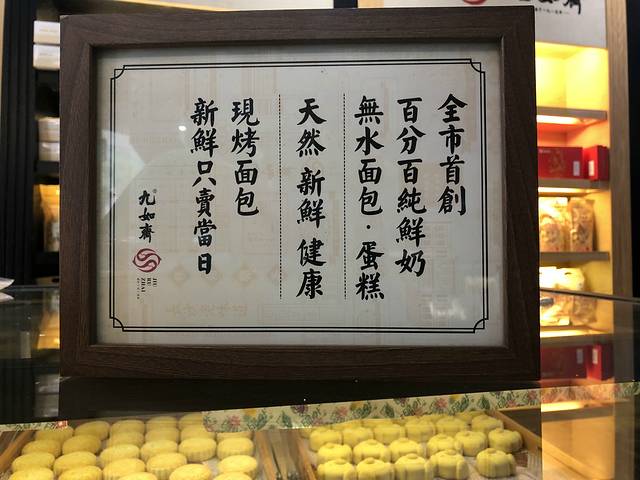 全市首創
百分百純鮮奶
無水面包·蛋糕
天然 新鮮 健康
現烤面包
新鮮只賣當日
九如齋
JIU
RU
ZHAI